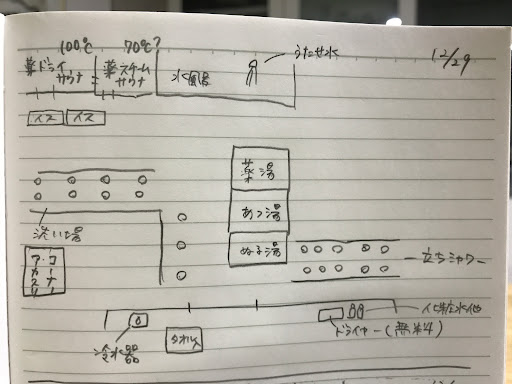 100℃
70℃?
うたせ水
12/29
薬ドライ
サウナ
薬スチーム
サウナ
水風呂
イス
イス
薬湯
あつ湯
ぬる湯
洗い場
アカスリ
コーナー
立ちシャワー
化粧水他
ドライヤー(無料)
冷水器
タオル